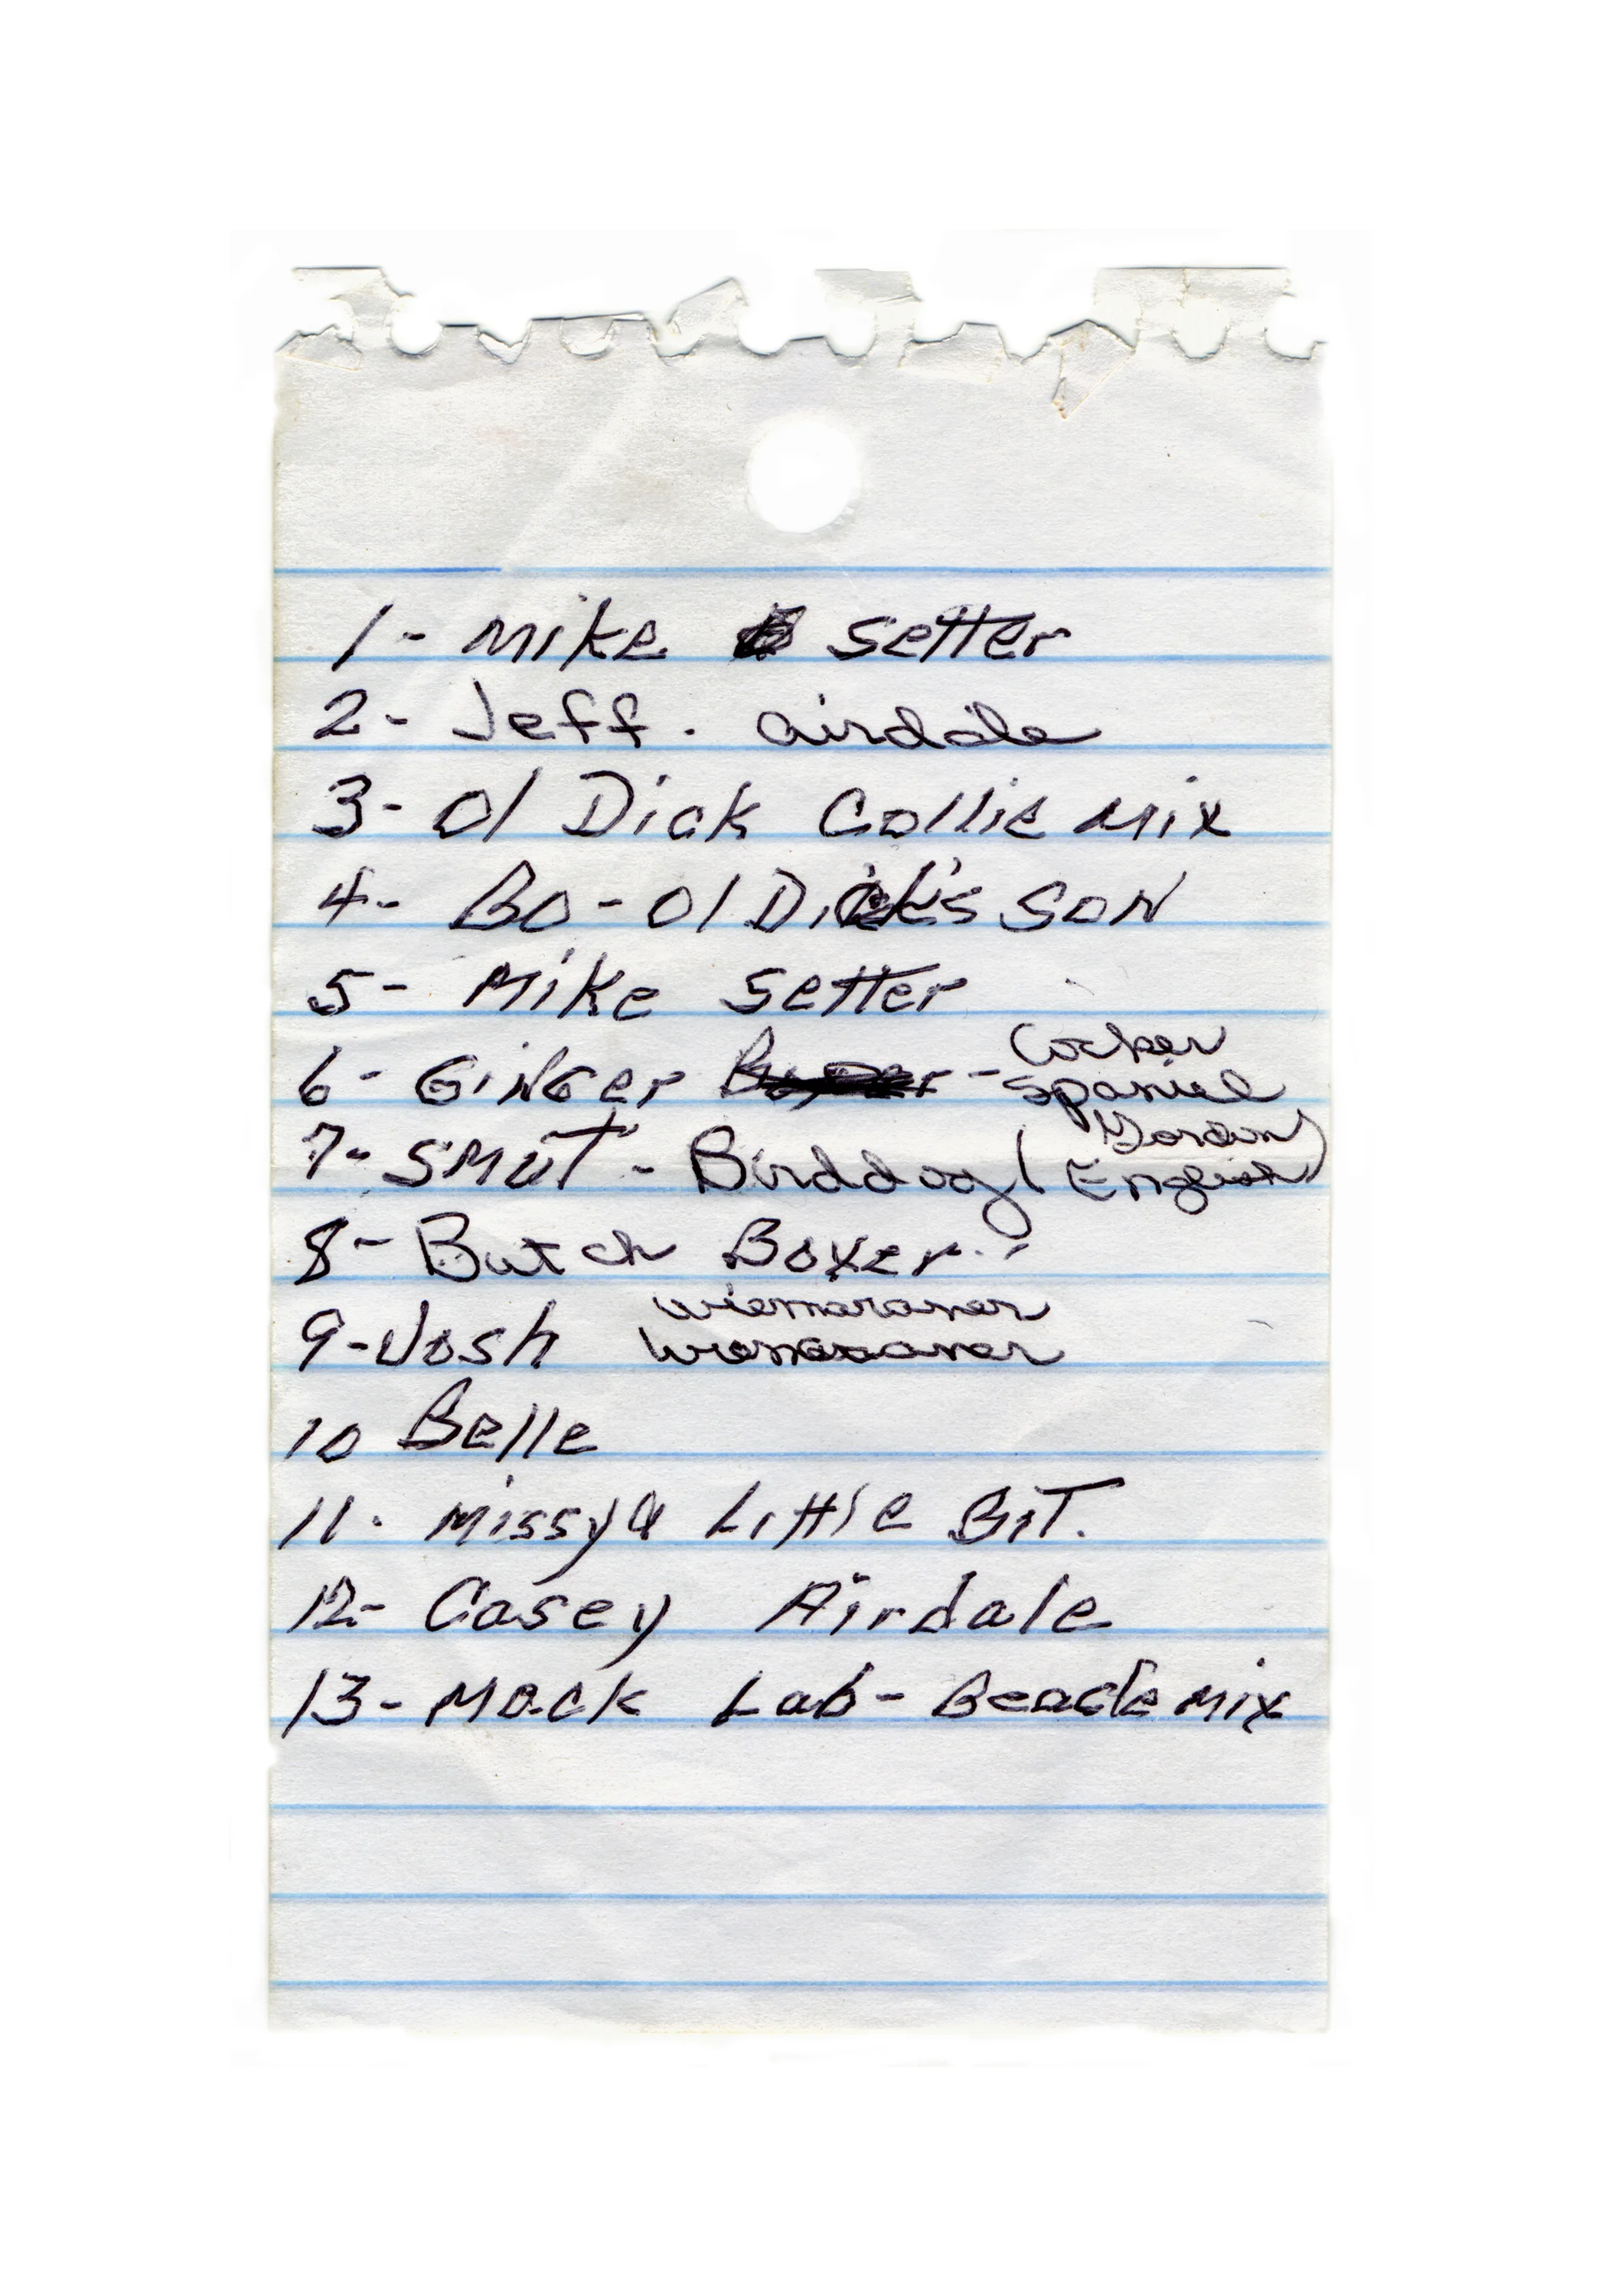 1- Mike Setter
2- Jeff. airdale
3- Ol Dick Collie Mix
4- Bo - Ol Dick's Son
5- Mike Setter
6- Ginger - Cocker
Spaniel
7- Smut - Birddog (Gordon
English)
8- Butch Boxer.
9- Josh wiemaraner
10 Belle
11. Missy & Little Bit.
12- Casey Airdale
13- Mack Lab - Beagle Mix